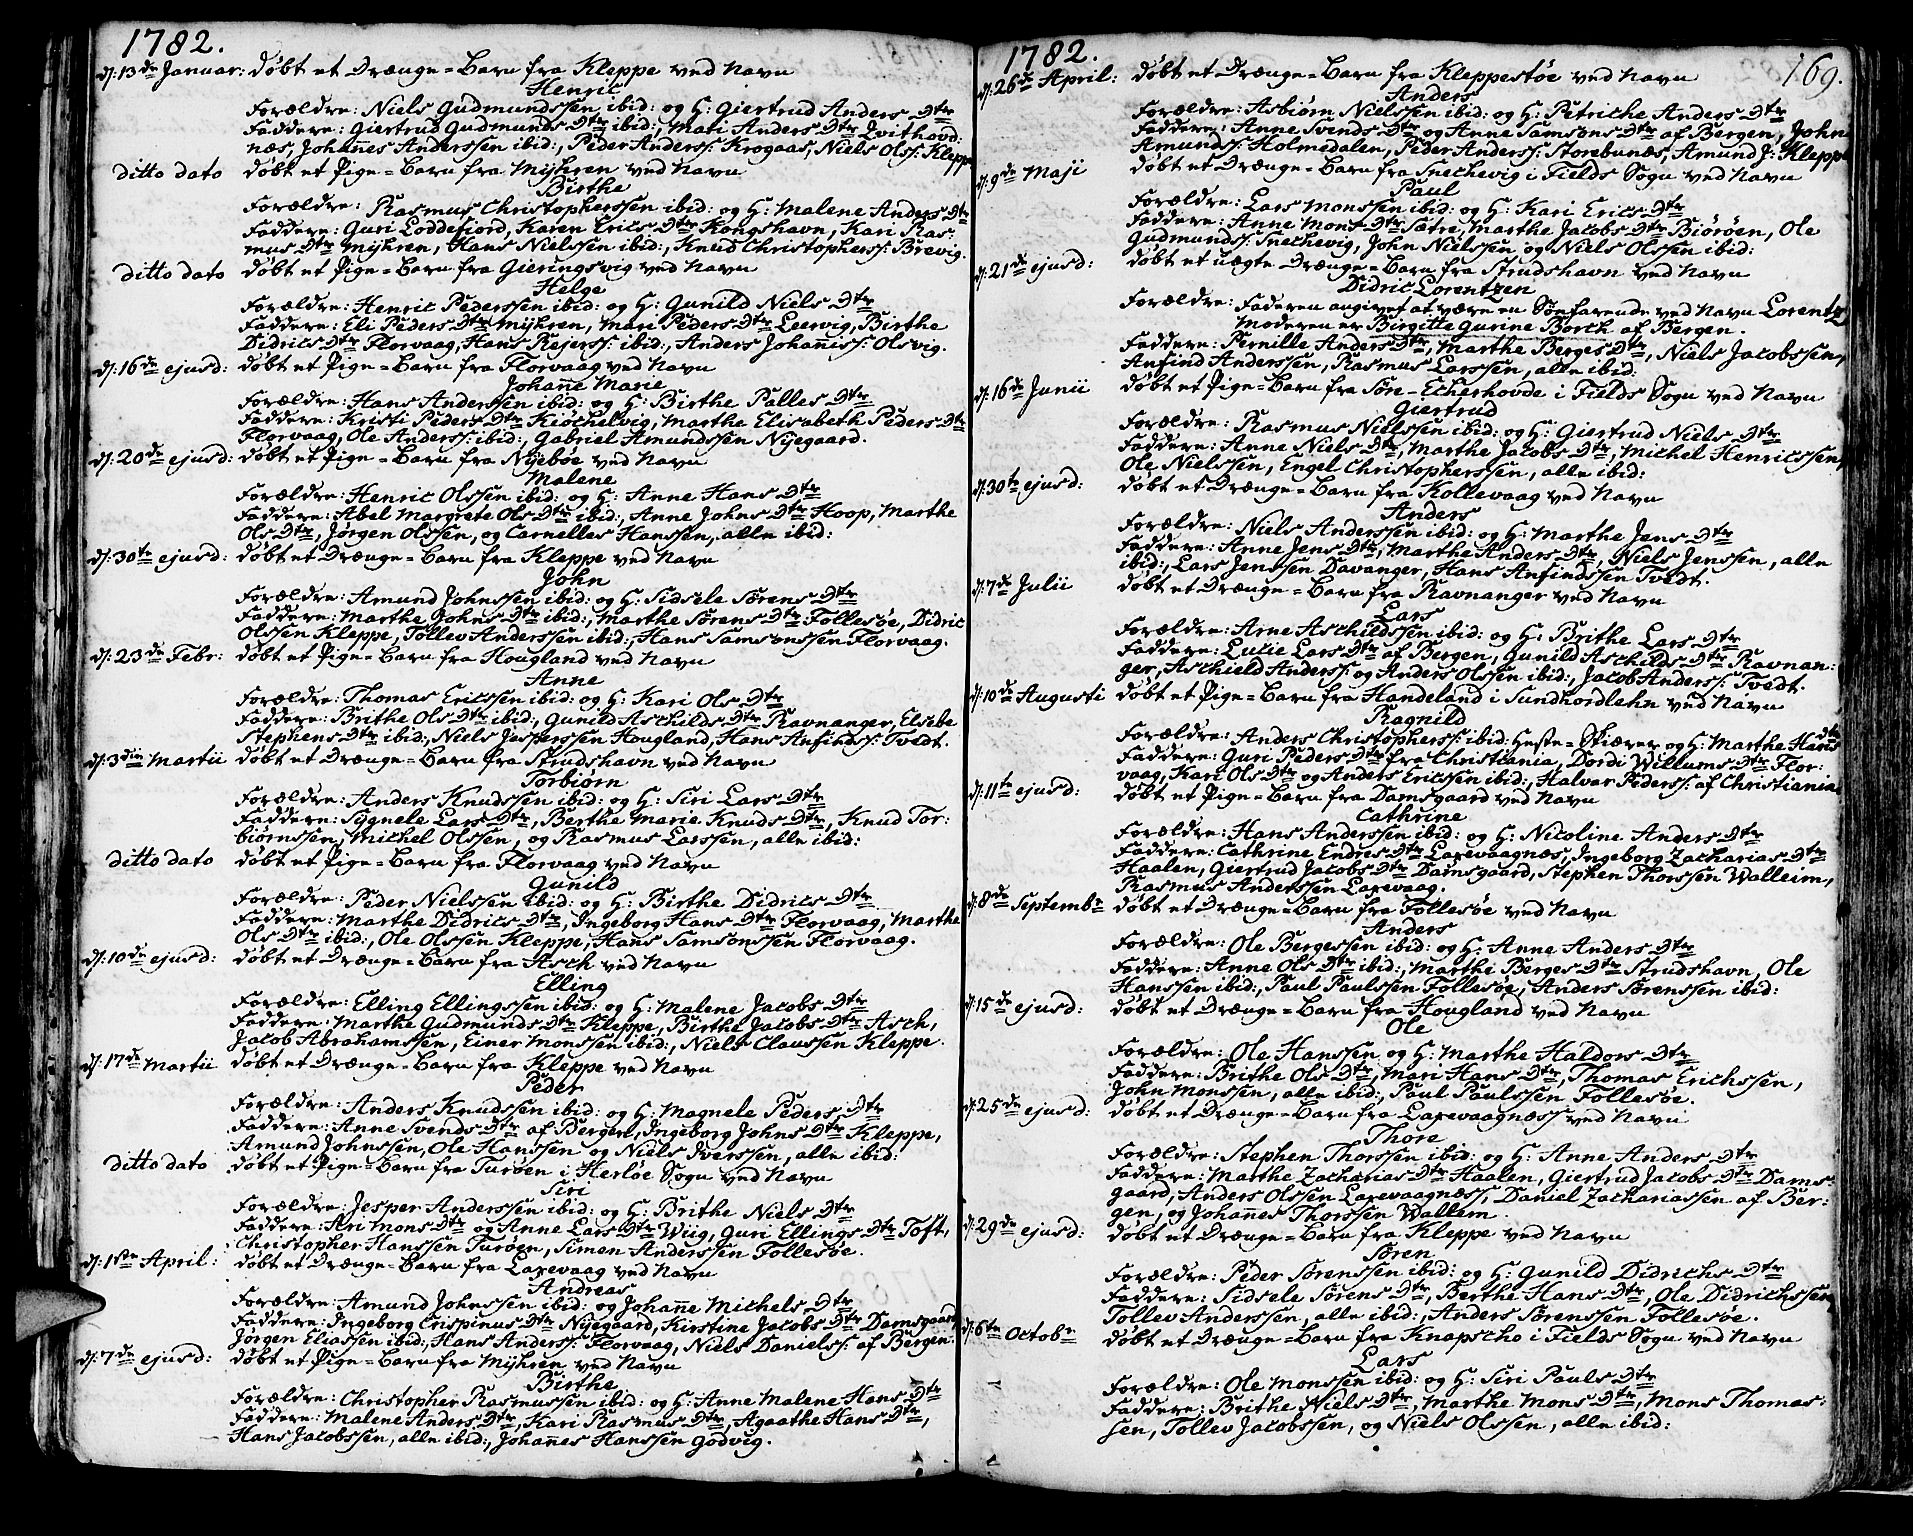 1782.
d: 13de Januar: døbt et Drænge-Barn fra Kleppe ved Navn
Henric
Forældre: Niels Gudmundssen ibid: og H: Giertrud Anders Dtr
Faddere: Giertrud Gudmunds Dtr ibid:, Mari Anders Dtr Qvithovd-
næs, Johannes Anderssen ibid:, Peder Anderss: Krogaas, Niels Olss: Kleppe
ditto dato døbt et Pige-Barn fra Mÿhren ved Navn
Birthe
Forældre: Rasmus Christopherssen ibid: og H: Malene Anders Dtr
Faddere: Guri Loddefiord, Karen Erics Dtr Kongshavn, Kari Ras-
mus Dtr Mÿhren, Hans Nielssen ibid:, Knud Christopherss: Brevig.
ditto dato døbt et Pige-Barn fra Gieringsvig ved Navn
Helge
Forældre: Henric Pederssen ibid: og H: Gunild Niels Dtr
Faddere: Eli Peders Dtr Mÿhren, Mari Peders Dtr Leervig, Birthe
Didrics Dtr Florvaag, Hans Rejerss: ibid:, Anders Johanniss: Olsvig.
d: 16de ejusd: døbt et Pige-Barn fra Florvaag ved Navn
Johanne Marie
Forældre: Hans Anderssen ibid: og H: Birthe Palles Dtr
Faddere: Kristi Peders Dtr Kiøchelvig, Marthe Elisabeth Peders Dtr
Florvaag, Ole Anderss: ibid:, Gabriel Amundssen Nÿegaard.
d: 20de ejusd: døbt et Pige-Barn fra Nÿebøe ved Navn
Malene
Forældre: Henric Olssen ibid: og H: Anne Hans Dtr
Faddere: Abel Margrete Ols Dtr ibid:, Anne Johns Dtr Hoop, Marthe
Ols Dtr, Jørgen Olssen, og Carnelles Hanssen, alle ibid:
d: 30te ejusd: døbt et Drænge-Barn fra Kleppe ved Navn
John
Forældre: Amund Johnssen ibid: og H: Sidsele Sørens Dtr
Faddere: Marthe Johns Dtr ibid:, Marthe Sørens Dtr Follesøe, Didric
Olssen Kleppe, Tollev Anderssen ibid:, Hans Samsonssen Florvaag.
d: 23de Febr: døbt et Pige-Barn fra Hougland ved Navn
Anne
Forældre: Thomas Ericssen ibid: og H: Kari Ols Dtr
Faddere: Brithe Ols Dtr ibid:, Gunild Aschilds Dtr Ravnanger, Elsebe
Stephens Dtr ibid:, Niels Jesperssen Hougland, Hans Anfindss: Tvedt.
d: 3die Martii døbt et Drænge-Barn fra Strudshavn ved Navn
Torbiørn
Forældre: Anders Knudssen ibid: og H: Siri Lars Dtr
Faddere: Sÿgnele Lars Dtr, Berthe Marie Knuds Dtr, Knud Tor-
biørnssen, Michel Olssen, og Rasmus Larssen, alle ibid:
ditto dato døbt et Pige-Barn fra Florvaag ved Navn
Gunild
Forældre: Peder Nielssen ibid: og H: Birthe Didrics Dtr
Faddere: Marthe Didrics Dtr, Ingeborg Hans Dtr Florvaag, Marthe
Ols Dtr ibid:, Ole Olssen Kleppe, Hans Samsonssen Florvaag.
d: 10de ejusd: døbt et Drænge-Barn fra Asch ved Navn
Elling
Forældre: Elling Ellingssen ibid: og H: Malene Jacobs Dtr
Faddere: Marthe Gudmunds Dtr Kleppe, Birthe Jacobs Dtr Asch,
Jacob Abrahamssen, Einer Monssen ibid:, Niels Claussen Kleppe.
d: 17de Martii døbt et Drænge-Barn fra Kleppe ved Navn
Peder
Forældre: Anders Knudssen ibid: og H: Magnele Peders Dtr
Faddere: Anne Svends Dtr af Bergen, Ingeborg Johns Dtr Kleppe,
Amund Johnssen, Ole Hanssen og Niels Iverssen, alle ibid:
ditto dato døbt et Pige-Barn fra Turøen i Herløe Sogn ved Navn
Siri
Forældre: Jesper Anderssen ibid: og H: Brithe Niels Dtr
Faddere: Ari Mons Dtr og Anne Lars Dtr Wiig, Guri Ellings Dtr Toft,
Christopher Hanssen Turøen, Simen Anderssen Follesøe.
d: 1ste April: døbt et Drænge-Barn fra Laxevaag ved Navn
Andreas
Forældre: Amund Johnssen ibid: og Johanne Michels Dtr
Faddere: Ingeborg Crispinus Dtr Nÿegaard, Kirstine Jacobs Dtr Damsgaard,
Jørgen Eliassen ibid:, Hans Anderss: Florvaag, Niels Daniels: af Bergen.
d: 7de ejusd: døbt et Pige-Barn fra Mÿhren ved Navn
Birthe
Forældre: Christopher Rasmussen ibid: og H: Anne Malene Hans Dtr
Faddere: Malene Anders Dtr, Kari Rasmus Dtr, Agaathe Hans Dtr,
Hans Jacobssen, alle ibid:, Johannes Hanssen Godvig.
1782. 169.
d: 26de April: døbt et Drænge-Barn fra Kleppestøe ved Navn
Anders
Forældre: Asbiørn Nielssen ibid: og H: Petriche Anders Dtr
Faddere: Anne Svends Dtr og Anne Samsons Dtr af Bergen, John
Amunds: Holmedalen, Peder Anderss: Storebunæs, Amund J: Kleppe
d: 9de Maji døbt et Drænge-Barn fra Snechevig i Fields Sogn ved Navn
Paul
Forældre: Lars Monssen ibid: og H: Kari Erics Dtr
Faddere: Anne Mons Dtr Sætre, Marthe Jacobs Dtr Biørøen, Ole
Gudmunds: Snechevig, John Nielssen og Niels Olssen ibid:
d: 21de ejusd: døbt et uægte Drænge-Barn fra Strudshavn ved Navn
Didric Lorentzen
Forældre: Faderen angivet at være en Søefarende ved Navn Lorentz
Moderen er Birgitte Gurine Borch af Bergen.
Faddere: Pernille Anders Dtr, Marthe Berges Dtr, Niels Jacobssen,
Anfind Anderssen, Rasmus Larssen, alle ibid:
d: 16de Junii døbt et Pige-Barn fra Søre-Echerhovde i Fields Sogn ved Navn
Giertrud
Forældre: Rasmus Nielssen ibid: og H: Giertrud Niels Dtr
Faddere: Anne Niels Dtr, Marthe Jacobs Dtr, Michel Henricssen,
Ole Nielssen, Engel Christopherssen, alle ibid:
d: 30te ejusd: døbt et Drænge-Barn fra Kollevaag ved Navn
Anders
Forældre: Niels Anderssen ibid: og H: Marthe Jens Dtr
Faddere: Anne Jens Dtr, Marthe Anders Dtr, Niels Jenssen, alle
ibid:, Lars Jenssen Davanger, Hans Anfindssen Tvedt.
d: 7de Julii døbt et Drænge-Barn fra Ravnanger ved Navn
Lars
Forældre: Arne Aschildssen ibid: og H: Brithe Lars Dtr
Faddere: Lucie Lars Dtr af Bergen, Gunild Aschilds Dtr Ravnan-
ger, Aschield Anderss: og Anders Olssen ibid:, Jacob Anderss: Tvedt.
d: 10de Augusti døbt et Pige-Barn fra Handeland i Sundhordlehn ved Navn
Ragnild
Forældre: Anders Christopherss: ibid: Heste-Skiærer og H: Marthe Hans Dtr
Faddere: Guri Peders Dtr fra Christiania, Dordi Willums Dtr Flor-
vaag, Kari Ols Dtr og Anders Ericssen ibid:, Halvar Pederss: af Christiania
d: 11te ejusd: døbt et Pige-Barn fra Damsgaard ved Navn
Cathrine
Forældre: Hans Anderssen ibid: og H: Nicoline Anders Dtr
Faddere: Cathrine Endres Dtr Laxevaagnæs, Ingeborg Zacharias Dtr
Haalen, Giertrud Jacobs Dtr Damsgaard, Stephen Thorssen Walleim,
Rasmus Anderssen Laxevaag.
d: 8de Septembr døbt et Drænge-Barn fra Follesøe ved Navn
Anders
Forældre: Ole Bergessen ibid: og H: Anne Anders Dtr
Faddere: Anne Ols Dtr ibid:, Marthe Berges Dtr Strudshavn, Ole
Hanssen ibid:, Paul Paulssen Follesøe, Anders Sørenssen ibid:
d: 15de ejusd: døbt et Drænge-Barn fra Hougland ved Navn
Ole
Forældre: Ole Hanssen og H: Marthe Haldors Dtr
Faddere: Brithe Ols Dtr, Mari Hans Dtr, Thomas Erichssen,
John Monssen, alle ibid:, Paul Paulssen Follesøe.
d: 25de ejusd: døbt et Drænge-Barn fra Laxevaagnæss ved Navn
Thore
Forældre: Stephen Thorssen ibid: og H: Anne Anders Dtr
Faddere: Marthe Zacharias Dtr Haalen, Giertrud Jacobs Dtr Dams-
gaard, Anders Olssen Laxevaagnæss, Daniel Zachariassen af Ber-
gen, og Johannes Thorssen Wallem.
d: 29de ejusd: døbt et Drænge-Barn fra Kleppe ved Navn
Søren
Forældre: Peder Sørenssen ibid: og H: Gunild Didrichs Dtr
Faddere: Sidsele Sørens Dtr, Berthe Hans Dtr, Ole Didrichssen
Tollev Anderssen, alle ibid:, Anders Sørenssen Follesøe.
d: 6te Octobr døbt et Drænge-Barn fra Knapscho i Fields Sogn ved Navn
Lars
Forældre: Ole Monssen ibid: og H: Siri Pauls Dtr
Faddere: Brithe Niels Dtr, Marthe Mons Dtr, Mons Thomas-
sen, Tollev Jacobssen, og Niels Olssen, alle ibid: